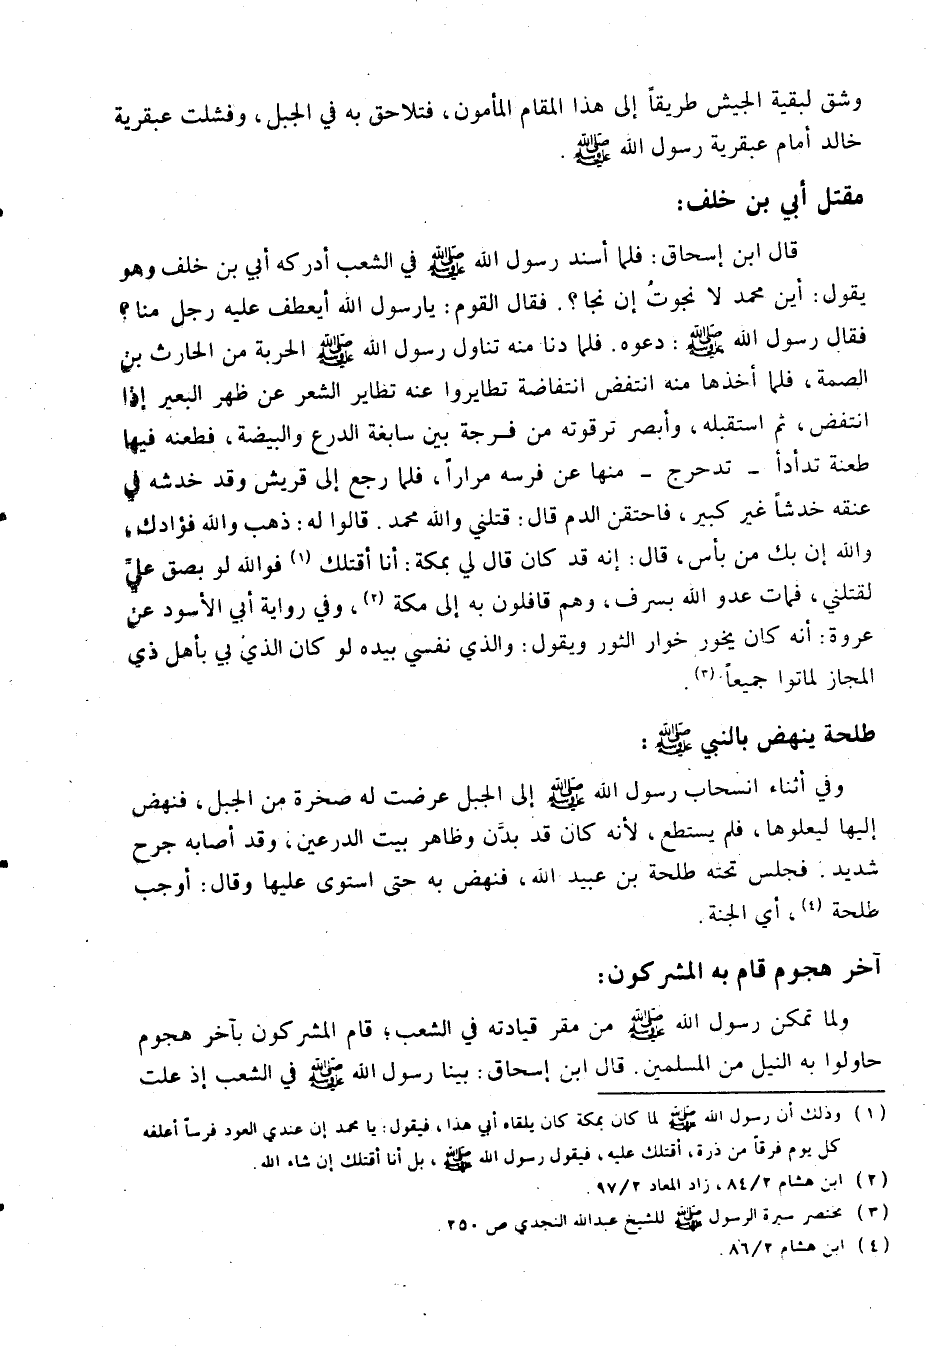 وشق لبقية الجيش طريقاً إلى هذا المقام المأمون، فتلاحق به في الجبل، وفشلت عبقرية
خالد أمام عبقرية رسول الله ﷺ .
مقتل أبي بن خلف:
قال ابن إسحاق: فلما أسند رسول الله ﷺ في الشعب أدركه أبي بن خلف وهو
يقول: أين محمد لا نجوتُ إن نجا؟. فقال القوم: يارسول الله أيعطف عليه رجل منا؟
فقال رسول الله ﷺ : دعوه. فلما دنا منه تناول رسول الله ﷺ الحربة من الحارث بن
الصمة، فلما أخذها منه انتفض انتفاضة تطايروا عنه تطاير الشعر عن ظهر البعير إذا
انتفض، ثم استقبله، وأبصر ترقوته من فرجة بين سابغة الدرع والبيضة، فطعنه فيها
طعنة تدأدأ - تدحرج - منها عن فرسه مراراً، فلما رجع إلى قريش وقد خدشه في
عنقه خدشاً غير كبير، فاحتقن الدم قال: قتلني والله محمد. قالوا له: ذهب والله فؤادك،
والله إن بك من بأس، قال: إنه قد كان قال لي بمكة: أنا أقتلك (١) فوالله لو بصق عليَّ
لقتلني، فمات عدو الله بسرف، وهم قافلون به إلى مكة (٢)، وفي رواية أبي الأسود عن
عروة: أنه كان يخور خوار الثور ويقول: والذي نفسي بيده لو كان الذي بي بأهل ذي
المجاز لماتوا جميعاً (٣).
طلحة ينهض بالنبي ﷺ :
وفي أثناء انسحاب رسول الله ﷺ إلى الجبل عرضت له صخرة من الجبل، فنهض
إليها ليعلوها، فلم يستطع، لأنه كان قد بدَّن وظاهر بيت الدرعين، وقد أصابه جرح
شديد. فجلس تحته طلحة بن عبيد الله، فنهض به حتى استوى عليها وقال: أوجب
طلحة (٤)، أي الجنة.
آخر هجوم قام به المشركون:
ولما تمكن رسول الله ﷺ من مقر قيادته في الشعب؛ قام المشركون بآخر هجوم
حاولوا به النيل من المسلمين. قال ابن إسحاق: بينا رسول الله ﷺ في الشعب إذ علت
(١) وذلك أن رسول الله ﷺ لما كان بمكة كان يلقاه أبي هذا، فيقول: يا محمد إن عندي العود فرساً أعلفه
كل يوم فرقاً من ذرة، أقتلك عليه، فيقول رسول الله ﷺ ، بل أنا أقتلك إن شاء الله.
(٢) ابن هشام ٨٤/٢، زاد المعاد ٩٧/٢.
(٣) مختصر سيرة الرسول ﷺ للشيخ عبدالله النجدي ص ٢٥٠.
(٤) ابن هشام ٨٦/٢.